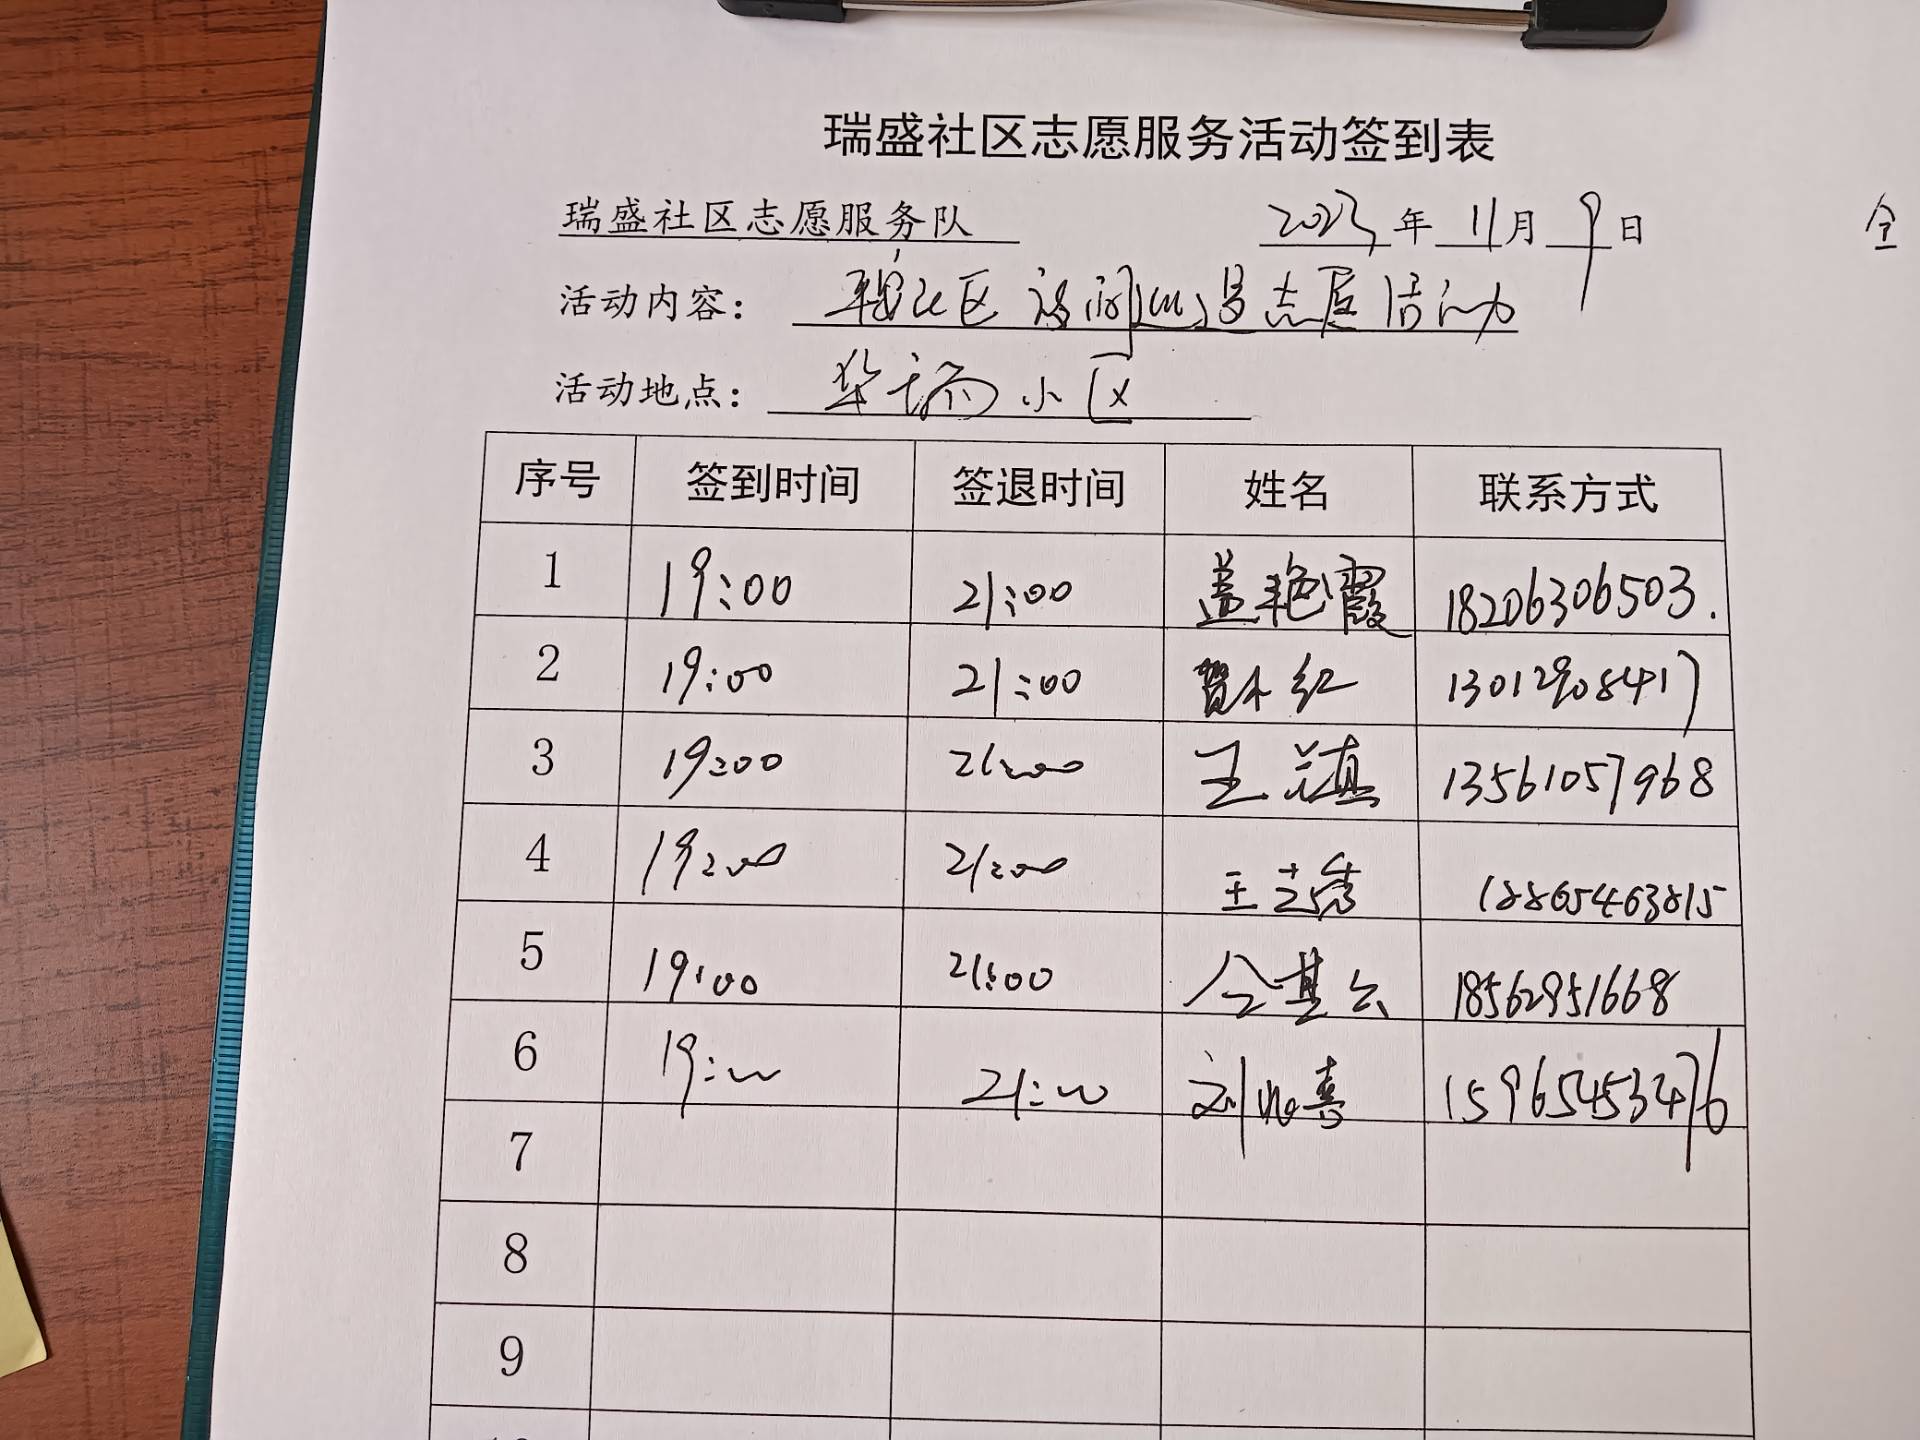 瑞盛社区志愿服务活动签到表
瑞盛社区志愿服务队 2023年 11月 9日
全
活动内容: 社区夜间巡逻志愿活动
活动地点: 华瑞小区
序号 签到时间 签退时间 姓名 联系方式
1 19:00 21:00 盖艳霞 18206306503.
2 19:00 21:00 贺红 13012908417
3 19:00 21:00 王 13561057968
4 19:00 21:00 王艺秀 18865463815
5 19:00 21:00 仝其云 18562951668
6 19:00 21:00 刘喜 15965453476
7
8
9